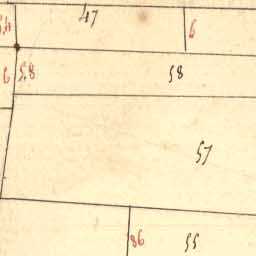 47
6
58
58
57
86
55